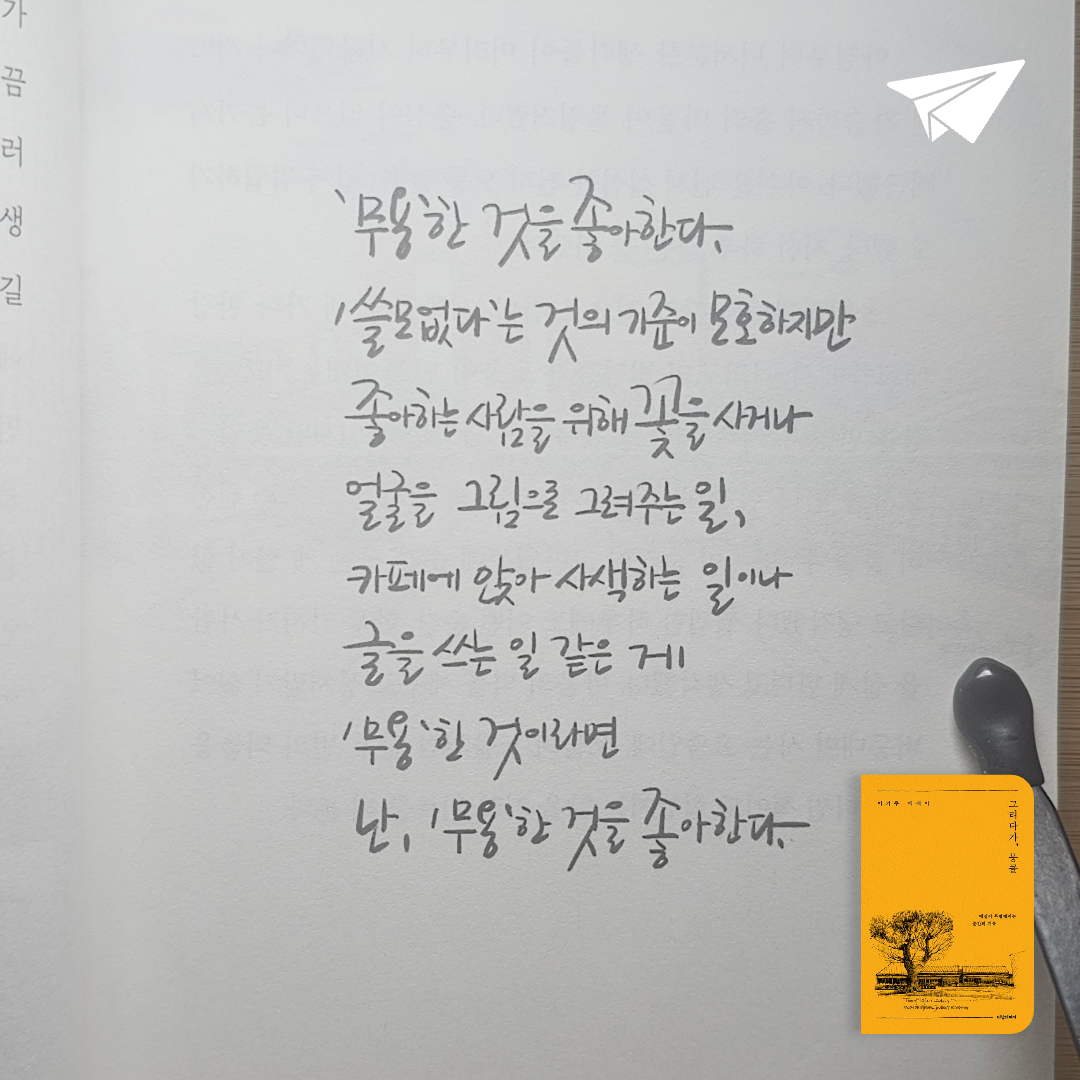 가
끔
러
생
길
'무용'한 것을 좋아한다.
'쓸모없다'는 것의 기준이 모호하지만
좋아하는 사람을 위해 꽃을 사거나
얼굴을 그림으로 그려주는 일,
카페에 앉아 사색하는 일이나
글을 쓰는 일 같은 게
'무용'한 것이라면
난, '무용'한 것을 좋아한다.
그리다가, 뭉클
이기주 에세이
매일이 특별해지는
순간의 기록